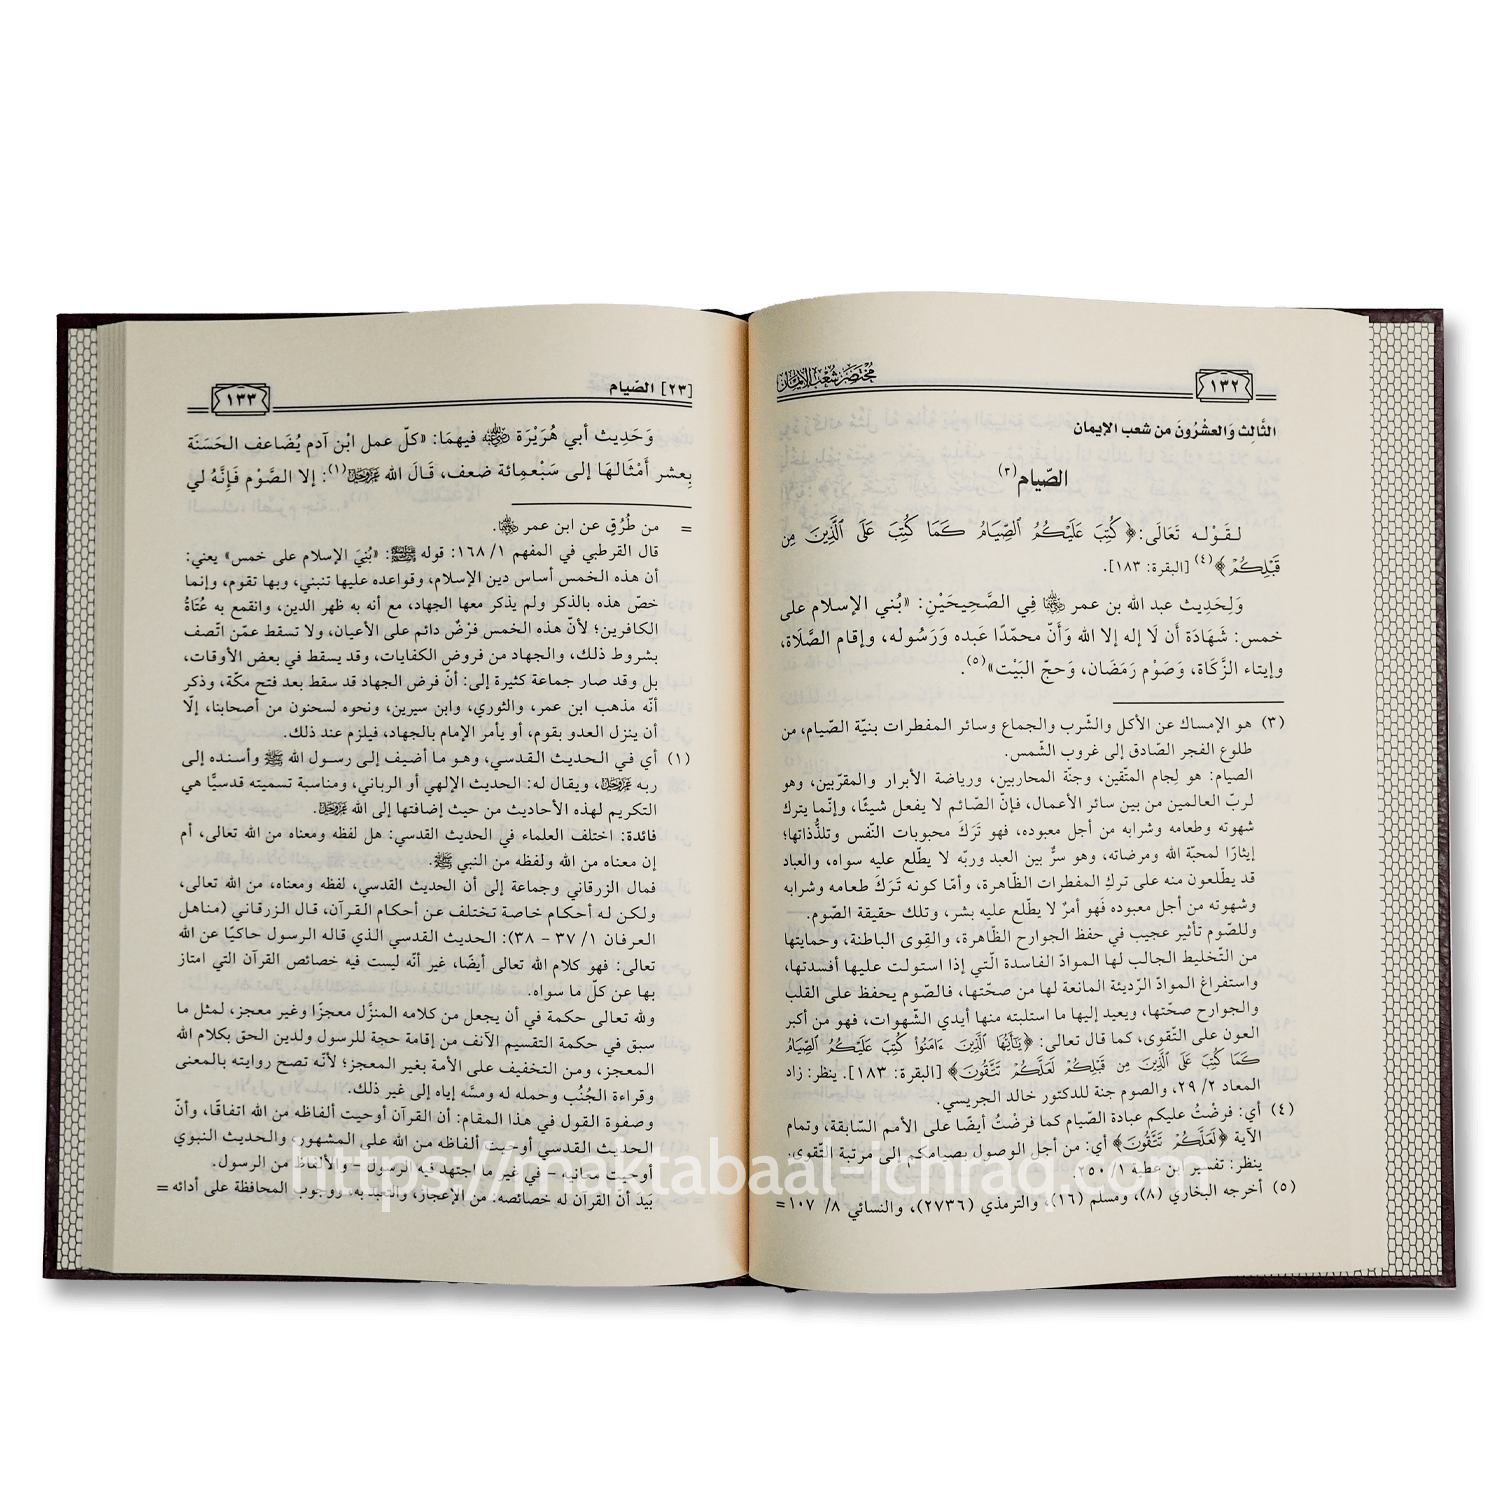 ١٣٢
مختصر شعب الإيمان
الثَّالِث وَالعشْرُونَ من شعب الإيمان
الصّيام(٣)
لقَوْله تَعَالَى: ﴿كُتِبَ عَلَيْكُمُ ٱلصِّيَامُ كَمَا كُتِبَ عَلَى ٱلَّذِينَ مِن
قَبْلِكُمْ﴾(٤) [البقرة: ١٨٣].
وَلِحَدِيث عبد الله بن عمر رضي الله عنهما فِي الصَّحِيحَيْنِ: «بُني الإسلام على
خمس: شَهَادَة أَن لَا إله إلا الله وَأَنّ محمّدًا عَبده وَرَسُوله، وإقام الصَّلَاة،
وإيتاء الزَّكَاة، وَصَوْم رَمَضَان، وَحجّ البَيْت»(٥).
(٣) هو الإمساك عن الأكل والشّرب والجماع وسائر المفطرات بنيّة الصّيام، من
طلوع الفجر الصّادق إلى غروب الشّمس.
الصيام: هو لِجام المتّقين، وجنّة المحاربين، ورياضة الأبرار والمقرّبين، وهو
لربّ العالمين من بين سائر الأعمال، فإنّ الصّائم لا يفعل شيئًا، وإنّما يترك
شهوته وطعامه وشرابه من أجل معبوده، فهو تَرَكَ محبوبات النّفس وتلذُّذاتها؛
إيثارًا لمحبّة الله ومرضاته، وهو سرٌّ بين العبد وربّه لا يطّلع عليه سواه، والعباد
قد يطّلعون منه على تركِ المفطرات الظّاهرة، وأمّا كونه تَرَكَ طعامه وشرابه
وشهوته من أجل معبوده فَهو أمرٌ لا يطّلع عليه بشر، وتلك حقيقة الصّوم.
وللصّوم تأثير عجيب في حفظ الجوارح الظّاهرة، والقِوى الباطنة، وحمايتها
من التّخليط الجالب لها الموادّ الفاسدة الّتي إذا استولت عليها أفسدتها،
واستفراغ الموادّ الرّديئة المانعة لها من صحّتها، فالصّوم يحفظ على القلب
والجوارح صحّتها، ويعيد إليها ما استلبته منها أيدي الشّهوات، فهو من أكبر
العون على التّقوى، كما قال تعالى: ﴿يَـٰٓأَيُّهَا ٱلَّذِينَ ءَامَنُوا۟ كُتِبَ عَلَيْكُمُ ٱلصِّيَامُ
كَمَا كُتِبَ عَلَى ٱلَّذِينَ مِن قَبْلِكُمْ لَعَلَّكُمْ تَتَّقُونَ﴾ [البقرة: ١٨٣]. ينظر: زاد
المعاد ٢/ ٢٩، والصوم جنة للدكتور خالد الجريسي.
(٤) أي: فرضْتُ عليكم عبادة الصّيام كما فرضْتُ أيضًا على الأمم السّابقة، وتمام
الآية ﴿لَعَلَّكُمْ تَتَّقُونَ﴾ أي: من أجل الوصول بصيامكم إلى مرتبة التّقوى.
ينظر: تفسير ابن عطية ١/ ٢٥٠.
(٥) أخرجه البخاري (٨)، ومسلم (١٦)، والترمذي (٢٧٣٦)، والنسائي ٨/ ١٠٧ =
[٢٣] الصّيام
١٣٣
وَحَدِيث أبي هُرَيْرَة رضي الله عنه فيهمَا: «كلّ عمل ابْن آدم يُضَاعف الحَسَنَة
بِعشر أَمْثَالهَا إلى سَبْعمِائة ضعف، قَالَ الله عز وجل(١): إلا الصَّوْم فَإِنَّهُ لي
= من طُرُقٍ عن ابن عمر رضي الله عنهما.
قال القرطبي في المفهم ١/ ١٦٨: قوله ﷺ: «بُنِيَ الإسلام على خمس» يعني:
أن هذه الخمس أساس دين الإسلام، وقواعده عليها تنبني، وبها تقوم، وإنما
خصّ هذه بالذكر ولم يذكر معها الجهاد، مع أنه به ظهر الدين، وانقمع به عُتَاةُ
الكافرين؛ لأنّ هذه الخمس فرْضٌ دائم على الأعيان، ولا تسقط عمّن اتّصف
بشروط ذلك، والجهاد من فروض الكفايات، وقد يسقط في بعض الأوقات،
بل وقد صار جماعة كثيرة إلى: أنّ فرض الجهاد قد سقط بعد فتح مكّة، وذكر
أنّه مذهب ابن عمر، والثوري، وابن سيرين، ونحوه لسحنون من أصحابنا، إلّا
أن ينزل العدو بقوم، أو يأمر الإمام بالجهاد، فيلزم عند ذلك.
(١) أي في الحديث القدسي، وهو ما أضيف إلى رسول الله ﷺ وأسنده إلى
ربه عز وجل، ويقال له: الحديث الإلهي أو الرباني، ومناسبة تسميته قدسيًّا هي
التكريم لهذه الأحاديث من حيث إضافتها إلى الله عز وجل.
فائدة: اختلف العلماء في الحديث القدسي: هل لفظه ومعناه من الله تعالى، أم
إن معناه من الله ولفظه من النبي ﷺ.
فمال الزرقاني وجماعة إلى أن الحديث القدسي، لفظه ومعناه، من الله تعالى،
ولكن له أحكام خاصة تختلف عن أحكام القرآن، قال الزرقاني (مناهل
العرفان ١/ ٣٧ - ٣٨): الحديث القدسي الذي قاله الرسول حاكيًا عن الله
تعالى: فهو كلام الله تعالى أيضًا، غير أنّه ليست فيه خصائص القرآن التي امتاز
بها عن كلّ ما سواه.
ولله تعالى حكمة في أن يجعل من كلامه المنزَّل معجزًا وغير معجز، لمثل ما
سبق في حكمة التقسيم الآنف من إقامة حجة للرسول ولدين الحق بكلام الله
المعجز، ومن التخفيف على الأمة بغير المعجز؛ لأنّه تصح روايته بالمعنى
وقراءة الجُنُب وحمله له ومسَّه إياه إلى غير ذلك.
وصفوة القول في هذا المقام: أن القرآن أوحيت ألفاظه من الله اتفاقًا، وأنّ
الحديث القدسي أوحيت ألفاظه من الله على المشهور، والحديث النبوي
أوحيت معانيه - في غير ما اجتهد فيه الرسول - والألفاظ من الرسول.
بَيْدَ أن القرآن له خصائصه: من الإعجاز، والتعبد به، ووجوب المحافظة على أدائه =
https://maktabaal-ichraq.com